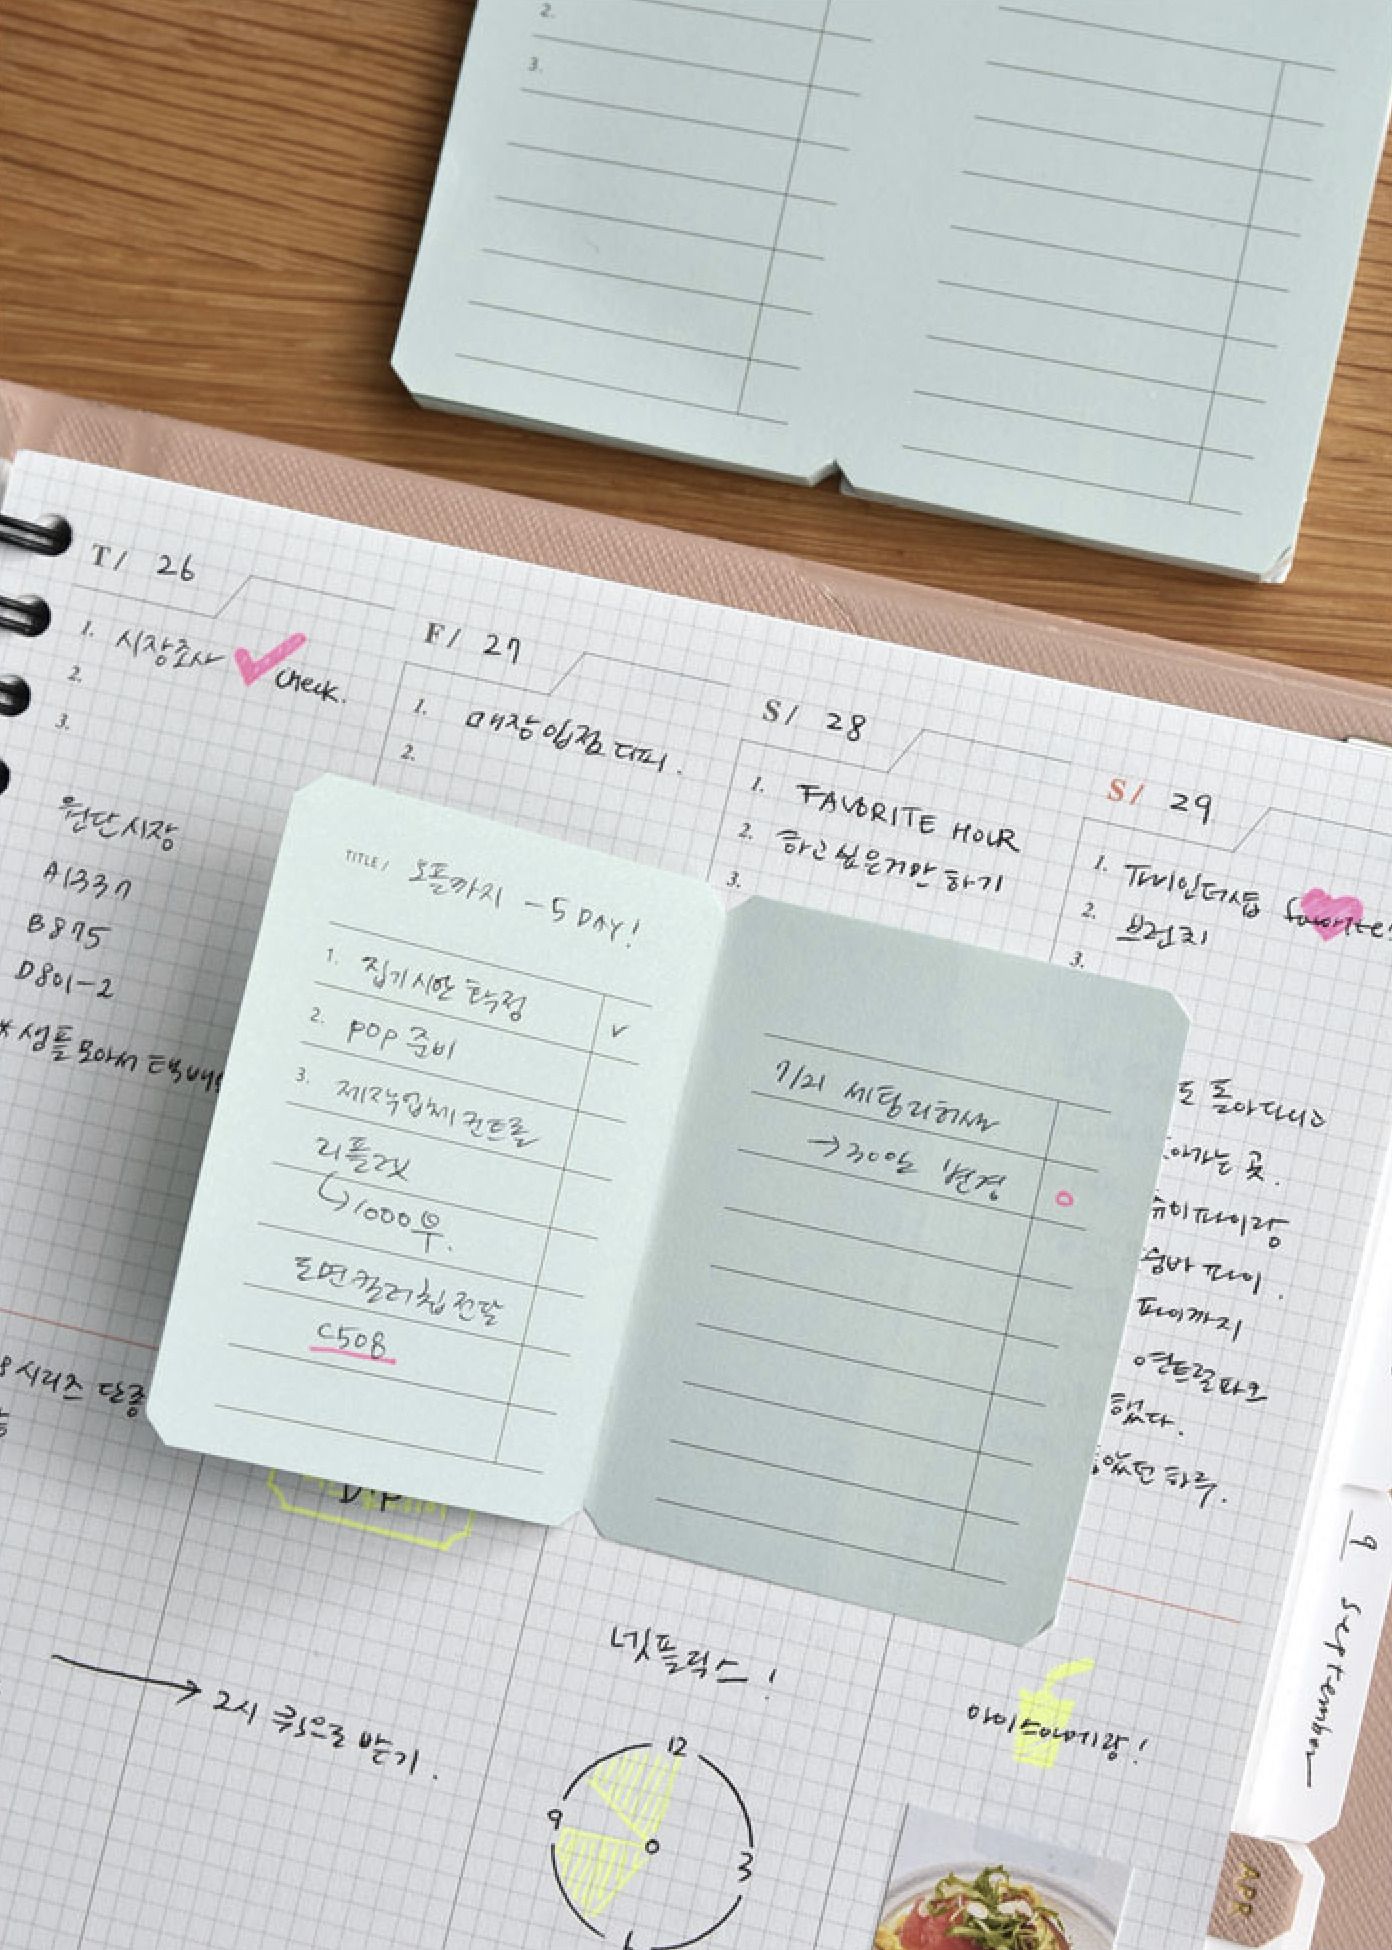 2.
3.
T/ 26
1. 시장조사 check.
2.
3.
원단시장
A1337
B875
D801-2
* 샘플 모아서 택배
시리즈 단종
F/ 27
1. 매장입점 디피.
2.
S/ 28
1. FAVORITE HOUR
2. 하고싶은거만 하기
3.
S/ 29
1. 파미인더숍 favorite!
2. 브런치
3.
TITLE/ 오픈까지 -5 DAY!
1. 집기시안 확정 ✓
2. POP 준비
3. 제작업체 컨트롤
리플렛
↳1000부.
도면컬러칩전달
C508
7/21 세팅리허설
→30일 변경 O
돌아다니고
아가는 곳.
파이랑
파이.
파이까지
센트럴파크
했다.
았던 하루.
→ 2시 퀵으로 받기.
넷플릭스!
12
9
3
아이스아메랑!
9 September
APR